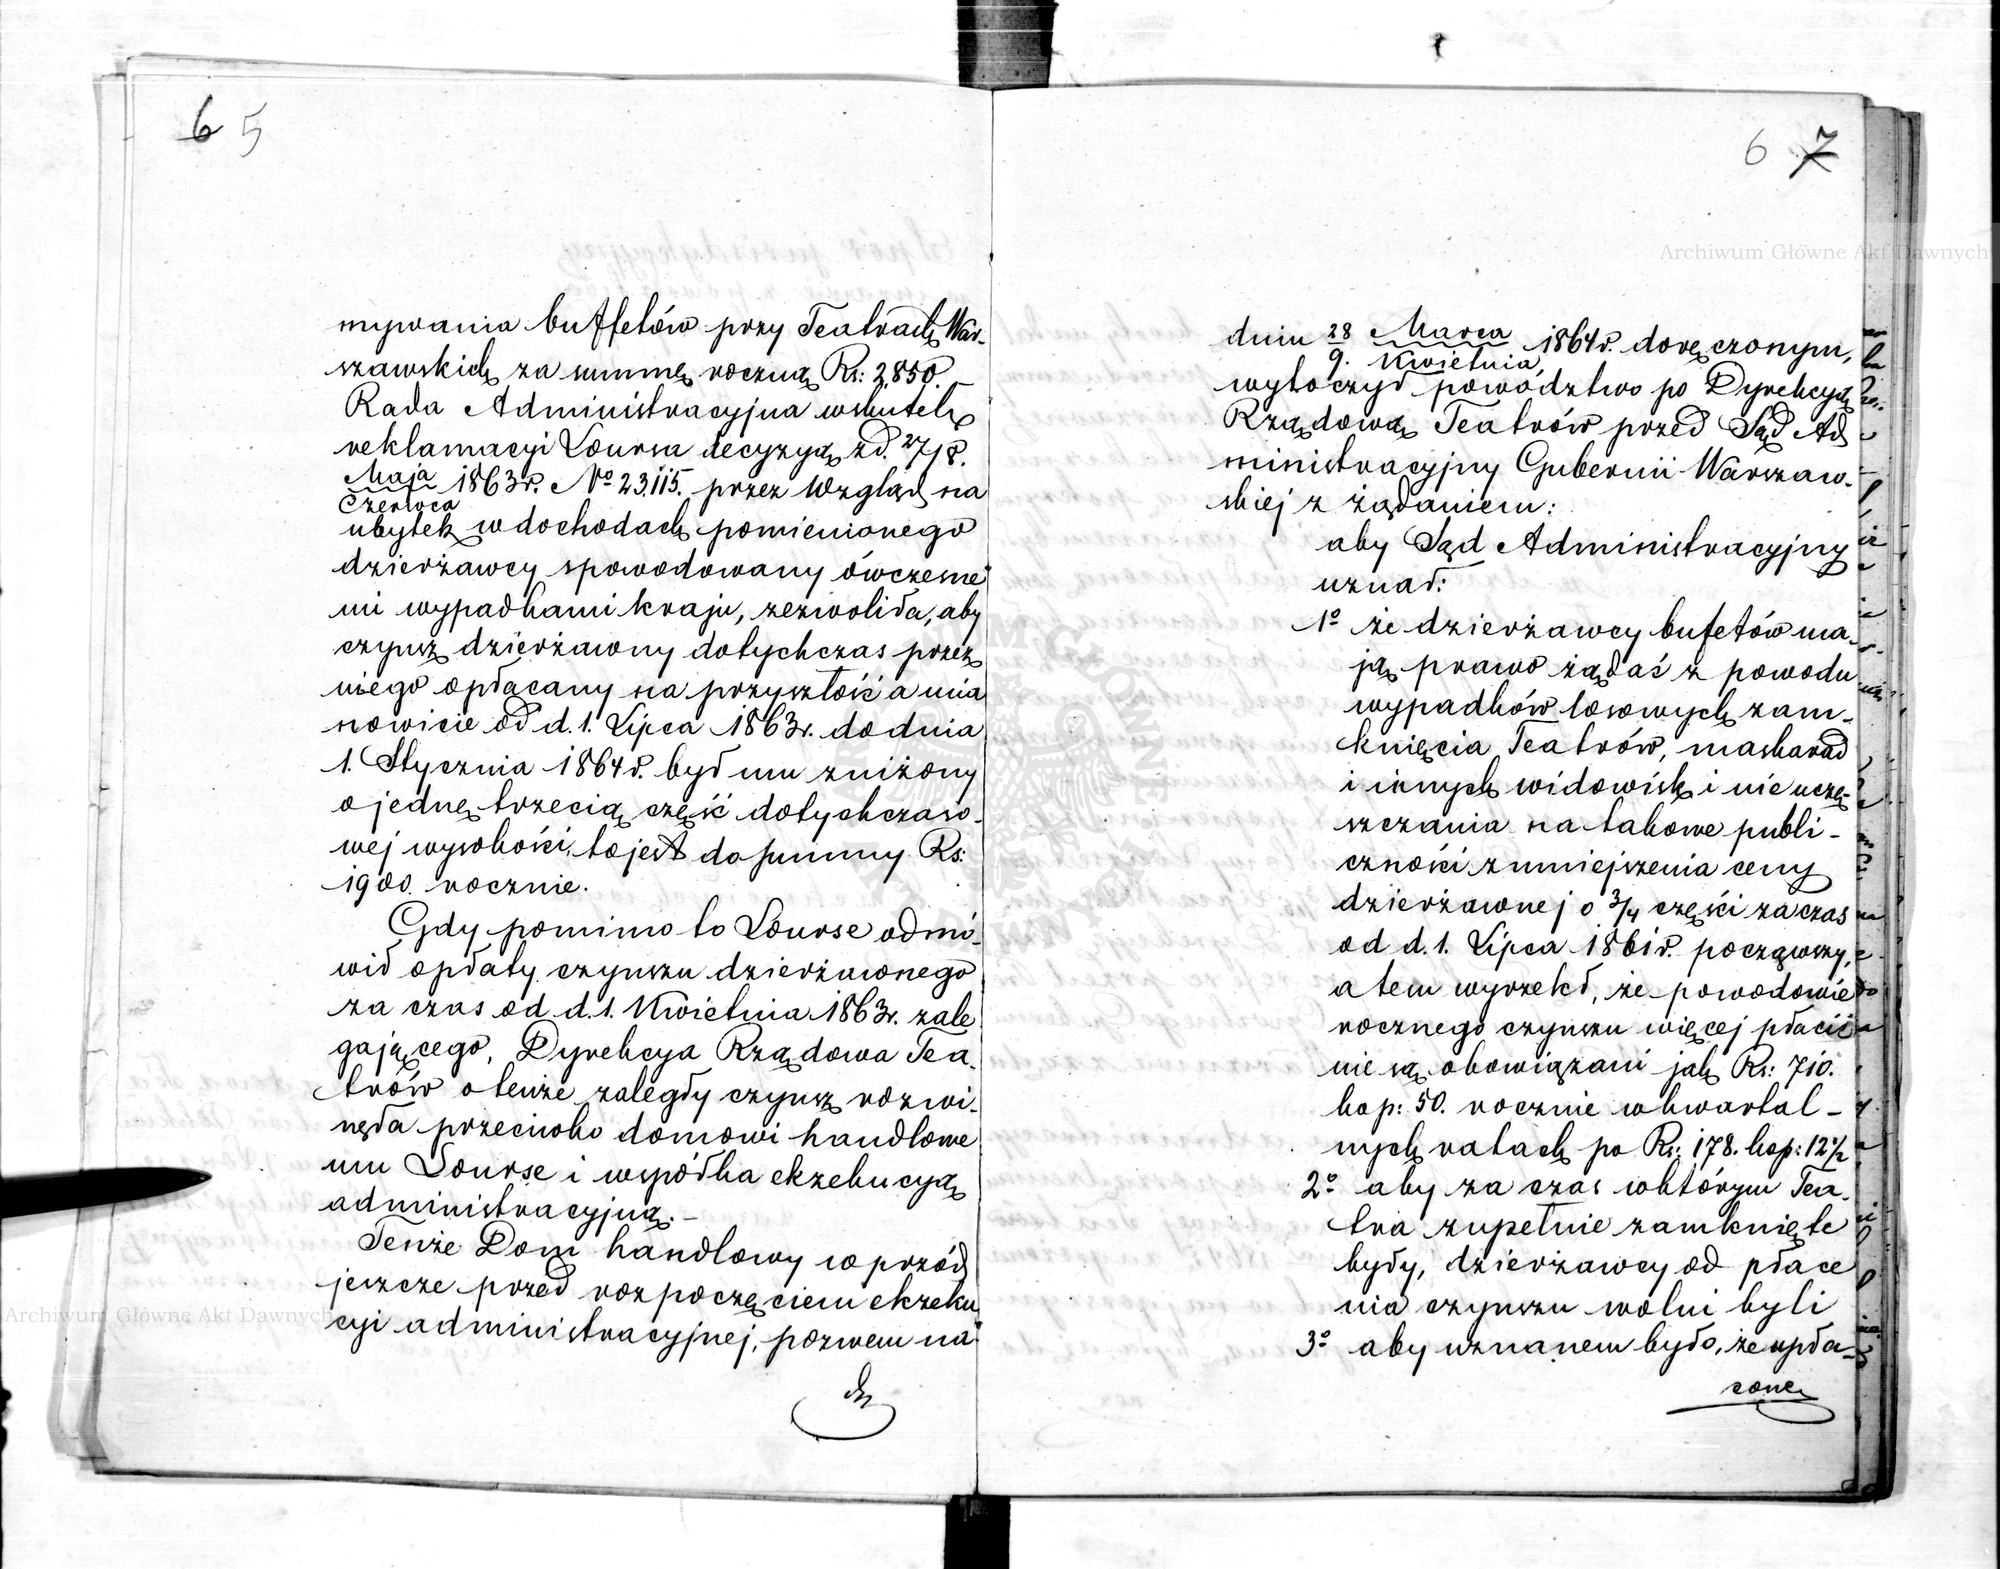 6 5
mywania buffetów przy Teatrach War-
szawskich za summę roczną Rs: 2,850.
Rada Administracyjna wskutek
reklamacyi Loursa decyzyą z d. 27/8.
Maja
Czerwca 1863 r. No 23,115. przez wzgląd na
ubytek w dochodach pomienionego
dzierżawcy spowodowany ówczesne
mi wypadkami kraju, zezwoliła, aby
czynsz dzierżawny dotychczas przez
niego opłacany na przyszłość a mia
nowicie od d. 1. Lipca 1863 r. do dnia
1. Stycznia 1864 r. był mu zniżony
o jednę trzecią część dotychczaso-
wej wysokości, to jest do summy Rs:
1900. rocznie.
Gdy pomimo to Lourse odmó-
wił opłaty czynszu dzierżawnego
za czas od d. 1. Kwietnia 1863 r. zale
gającego, Dyrekcya Rządowa Tea-
trów o tenże zaległy czynsz rozwi-
nęła przeciwko domowi handlowe
mu Lourse i wspólka ekzekucyą
administracyjną. –
Tenże Dom handlowy wprzód
jeszcze przed rozpoczęciem ekzeku
cyi administracyjnej, pozwem na
dn
6 7
dniu 28 Marca
9. Kwietnia, 1864 r. doręczonym,
wytoczył powództwo po Dyrekcyą
Rządową Teatrów przed Sąd Ad
ministracyjny Gubernii Warszaw-
skiej z żądaniem:
aby Sąd Administracyjny
uznał:
1o że dzierżawcy bufetów ma-
ją prawo żądać z powodu
wypadków losowych zam-
knięcia Teatrów, maskarad
i innych widowisk i nie uczę-
szczania na takowe publi-
czności zmniejszenia ceny
dzierżawnej o 3/4 części za czas
od d. 1. Lipca 1861 r. począwszy,
a tem wyrzekł, że powodowie
rocznego czynszu więcej płacić
nie są obowiązani jak Rs: 710.
kop: 50. rocznie w kwartal-
nych ratach po Rs: 178. kop: 12 1/2
2o aby za czas w którym Tea-
tra zupełnie zamknięte
były, dzierżawcy od płace
nia czynszu wolni byli
3o aby uznanem było, że opła-
cone
Archiwum Główne Akt Dawnych
Archiwum Główne Akt Dawnych